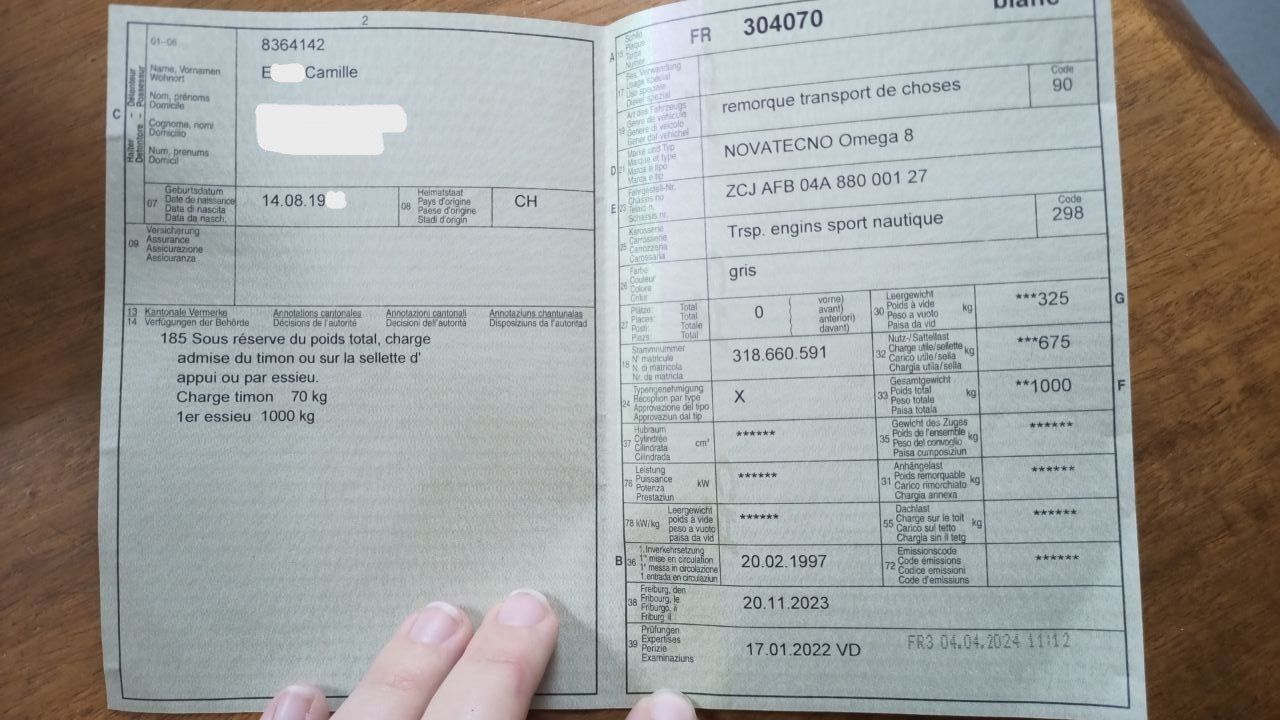 2
01-06
8364142
Name, Vornamen
Wohnort
E Camille
Nom, prénoms
Domicile
Cognome, nomi
Domicilio
Num, prenums
Domicil
C
Halter - Détenteur
Detentore - Possessur
07
Geburtsdatum
Date de naissance
Data di nascita
Data da nasch.
14.08.19
08
Heimatstaat
Pays d'origine
Paese d'origine
Stadi d'origin
CH
09
Versicherung
Assurance
Assicurazione
Assicuranza
13 Kantonale Vermerke Annotations cantonales Annotazioni cantonali Annotaziuns chantunalas
14 Verfügungen der Behörde Décisions de l'autorité Decisioni dell'autorità Disposiziuns da l'autoritad
185 Sous réserve du poids total, charge
admise du timon ou sur la sellette d'
appui ou par essieu.
Charge timon 70 kg
1er essieu 1000 kg
blanc
A
15
Schild
Plaque
Targa
Numer
FR 304070
17
Bes. Verwendung
Usage spécial
Uso speciale
Diever spezial
19
Art des Fahrzeugs
Genre de véhicule
Genere di veicolo
Gener dal vehichel
remorque transport de choses
Code
90
D
21
Marke und Typ
Marque et type
Marca e tipo
Marca e tip
NOVATECNO Omega 8
E
23
Fahrgestell-Nr.
Châssis no
Telaio n.
Schassis nr.
ZCJ AFB 04A 880 001 27
25
Karosserie
Carrosserie
Carrozzeria
Carossaria
Trsp. engins sport nautique
Code
298
26
Farbe
Couleur
Colore
Colur
gris
27
Plätze: Total
Places: Total
Posti: Totale
Plazs: Total
0
vorne)
avant)
anteriori)
davant)
30
Leergewicht
Poids à vide
Peso a vuoto
Paisa da vid
kg
***325
G
18
Stammnummer
N° matricule
N. di matricola
Nr. da matricla
318.660.591
32
Nutz-/Sattellast
Charge utile/sellette
Carico utile/sella
Chargia utila/sella
kg
***675
24
Typengenehmigung
Réception par type
Approvazione del tipo
Approvaziun dal tip
X
33
Gesamtgewicht
Poids total
Peso totale
Paisa totala
kg
**1000
F
37
Hubraum
Cylindrée
Cilindrata
Cilindrada
cm³
******
35
Gewicht des Zuges
Poids de l'ensemble
Peso del convoglio
Paisa cumposiziun
kg
******
76
Leistung
Puissance
Potenza
Prestaziun
kW
******
31
Anhängelast
Poids remorquable
Carico rimorchiato
Chargia annexa
kg
******
78 kW/kg
Leergewicht
poids à vide
peso a vuoto
paisa da vid
******
55
Dachlast
Charge sur le toit
Carico sul tetto
Chargia sin il tetg
kg
******
B
36
1.Inverkehrsetzung
1re mise en circulation
1a messa in circolazione
1.entrada en circulaziun
20.02.1997
72
Emissionscode
Code émissions
Codice emissioni
Code d'emissiuns
******
38
Freiburg, den
Fribourg, le
Friburgo, il
Friburg il
20.11.2023
39
Prüfungen
Expertises
Perizie
Examinaziuns
17.01.2022 VD
FR3 04.04.2024 11:12